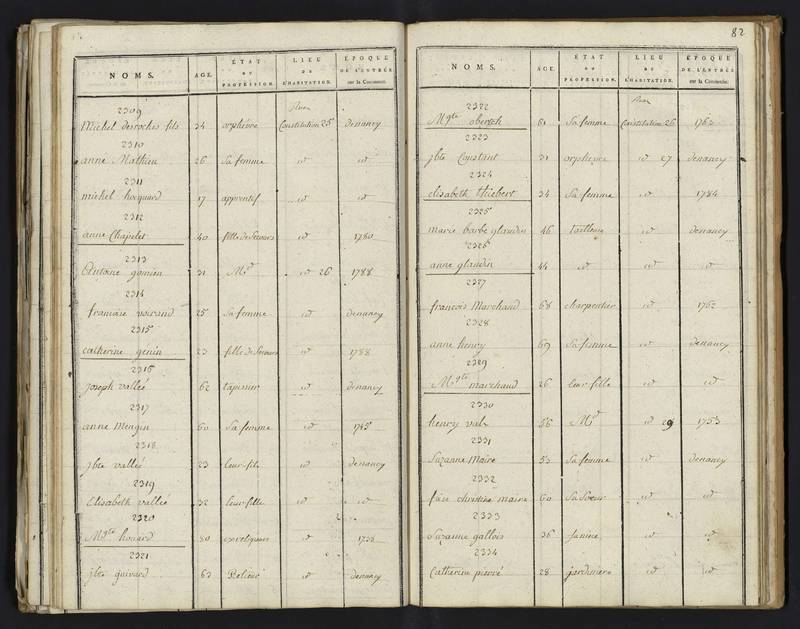 NOMS. AGE. ÉTAT OU PROFESSION. LIEU DE L'HABITATION. ÉPOQUE DE L'ENTRÉE sur la Commune.
Rue
2309
Michel desroches fils 34 orphévre Constitution 25 denancy
2310
anne Mathieu 26 Sa femme id id
2311
michel hocquard 17 apprentif id id
2312
anne Chapelet 40 fille de Secours id 1780
2313
Antoine gomien 31 Md id 26 1788
2314
francoise voirand 25 Sa femme id denancy
2315
catherine génin 23 fille de Secours id 1788
2316
Joseph vallée 62 tapissier id denancy
2317
anne Mengin 60 Sa femme id
2318
jbte vallée 23 leur fils id denancy
2319
Elisabeth vallée 32 leur fille id id
2320
Mgte houard 80 id
2321
jbte guivard 63 Relieur id denancy
82
NOMS. AGE. ÉTAT OU PROFESSION. LIEU DE L'HABITATION. ÉPOQUE DE L'ENTRÉE sur la Commune.
Rue
2322
Mgte obersch 61 Sa femme Constitution 26 1763
2323
jbte Constant 31 orphevre id 27 denancy
2324
elisabeth thiebert 34 Sa femme id 1784
2325
marie barbe glandin 46 tailleuse id denancy
2326
anne glandin 44 id id id
2327
francois Marchand 68 charpentier id 1762
2328
anne henry 69 Sa femme id denancy
2329
Mgte marchand 26 leur fille id id
2330
henry vals 56 Md id 29 1753
2331
Suzanne Maire 53 Sa femme id denancy
2332
christine maire 60 Sa Soeur id id
2333
Suzanne gallois 36 id id
2334
Catherine pierré 28 jardiniere id id